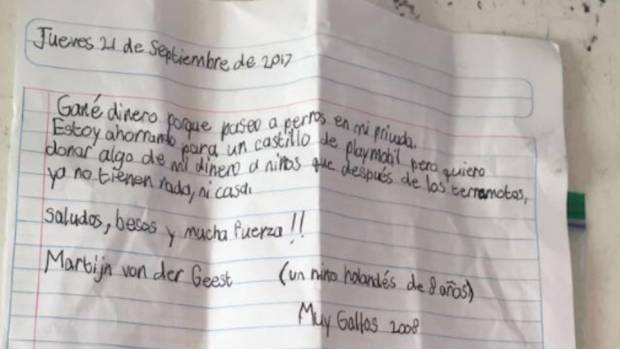 Jueves 21 de Septiembre de 2017
Gané dinero porque paseo a perros en mi privada.
Estoy ahorrando para un castillo de playmobil pero quiero
donar algo de mi dinero a niños que después de los terremotos,
ya no tienen nada, ni casa.
Saludos, besos y mucha fuerza!!
Martijn van der Geest (un niño holandés de 8 años)
Muy Gallos 2008